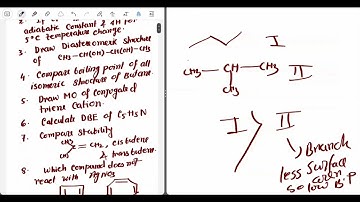 adiabatic Constant & ΔH for
5°C temperature change.
3. Draw Diastereomeric Structure
of CH3-CH(OH)-CH(OH)-CH3
4. Compare boiling point of all
isomeric structure of Butane.
5. Draw MO of Conjugated
triene Cation.
6. Calculate DBE of C5H5N
7. Compare stability
CH3 C=CH2, cis butene
CH3 & trans butene.
8. Which Compound does not
react with
I
CH3-CH-CH3 II
CH3
I > II
Branch
less Surface
area
so low B.P